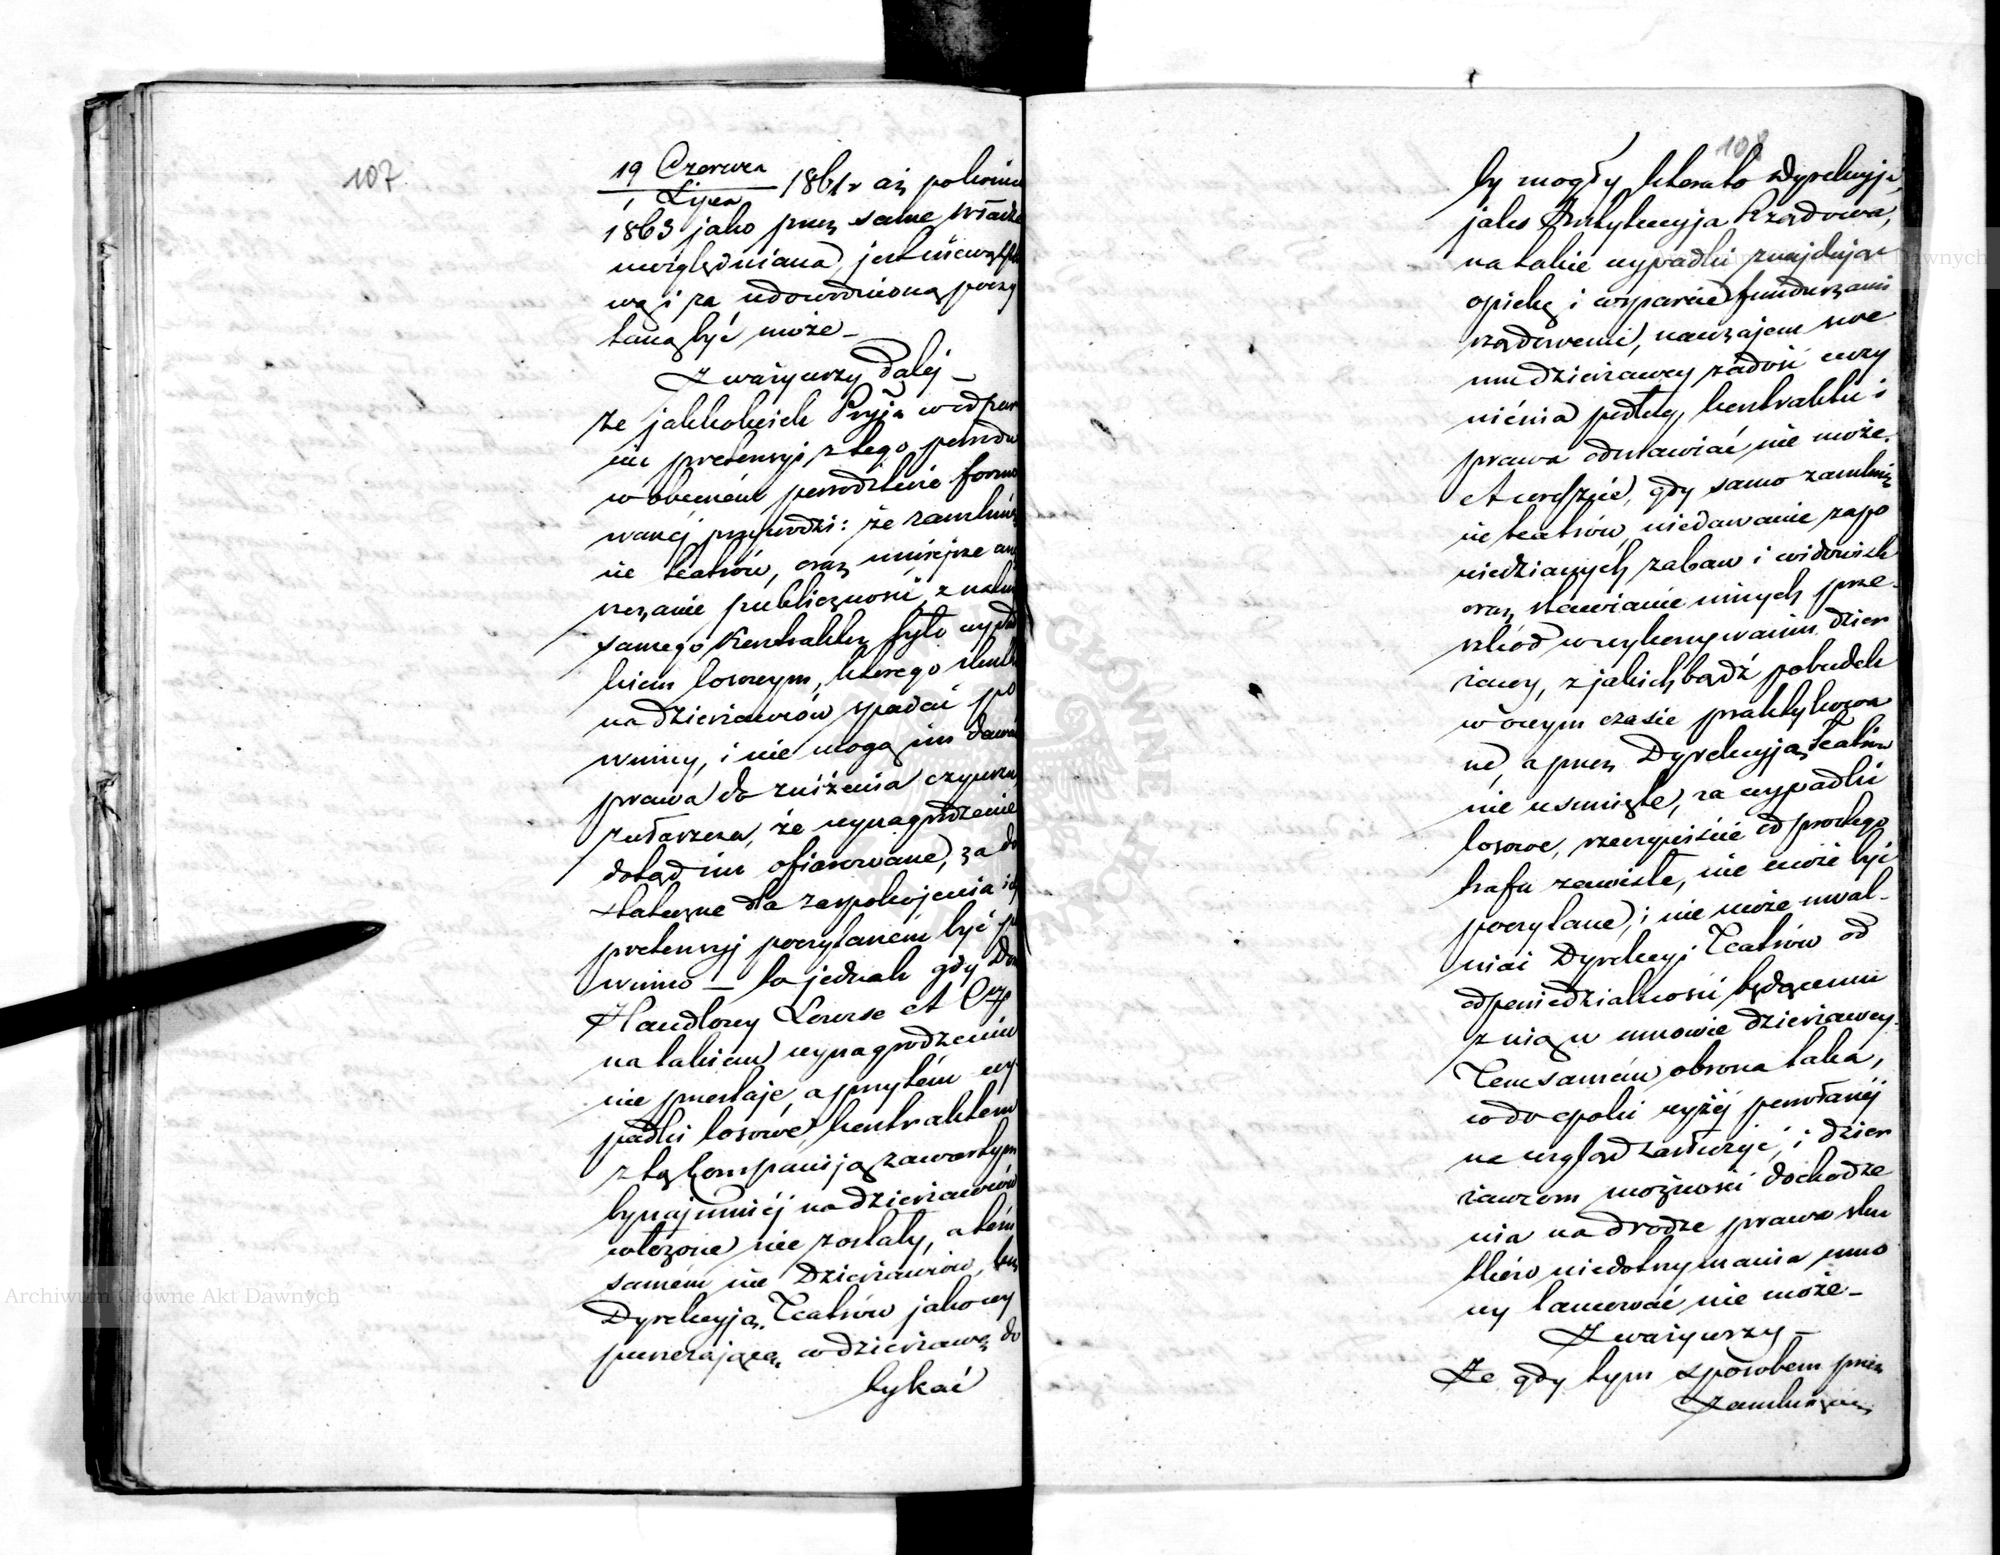 107
19 Czerwca
1 Lipca
1861 r aż po koniec
1863 jako przez same władze
uwzględniana, jest niewątpli
wą i za udowodnioną poczy
taną być może –
Zważywszy dalej –
że jakkolwiek Pozwa w odpar
ciu pretensyi z tego powodu
w obecném powództwie formo
wanéj przywodzi: że zamknię
nie teatrów, oraz mniejsze
uczęszczanie publiczności, z natury
samego Kontraktu było wypad
kiem losowym, którego skutki
na dzierżawców spadać po
winny, i nie mogą im dawać
prawa do zniżenia czynszu,
zwłaszcza, że wynagrodzenie
dotąd im ofiarowane, za do
stateczne dla zaspokojenia ich
pretensyj poczytaném być po
winno — to jednak gdy Dom
Handlowy Lourse et Cop
na takiem wynagrodzeniu
nie przestaje, a przytém wy
padki losowe kontraktem
z tą kompaniją zawartym
bynajmniéj na dzierżawców
włożone nie zostały, a tém
samém nie Dzierżawców, lecz
Dyrekcyją Teatrów jako wy
puszczającą w dzierżawę do
tykać
108
by mogły które to Dyrekcyja,
jako Instytucyja Rządowa,
na takie wypadki znajdując
opiekę i wsparcie funduszami
rządowemi, nawzajem swe
mu dzierżawcy zadość uczy
nienia podług kontraktu i
prawa odmawiać nie może.
A wreszcie, gdy samo zamknię
cie teatrów, niedawanie zapo
wiedzianych zabaw i widowisk
oraz stawianie innych prze-
szkód w wykonywaniu dzier
żawy, z jakichbądź pobudek
w owym czasie praktykowa
ne, a przez Dyrekcyją Teatrów
nie usunięte, za wypadki
losowe, rzeczywiście od prostego
trafu zawisłe, nie może być
poczytane, i nie może uwal-
niać Dyrekcyi Teatrów od
odpowiedzialności będącemu
z nią w umowie dzierżawcy.
Tem samém obrona taka,
co do epoki wyżéj powołanéj
na wzgląd zasłużyć, i dzier
żawcom możności dochodze
nia na drodze prawa sku
tków niedotrzymania umo
wy tamować nie może –
Zważywszy –
Że gdy tym sposobem przez
zamknięcie
Archiwum Główne Akt Dawnych